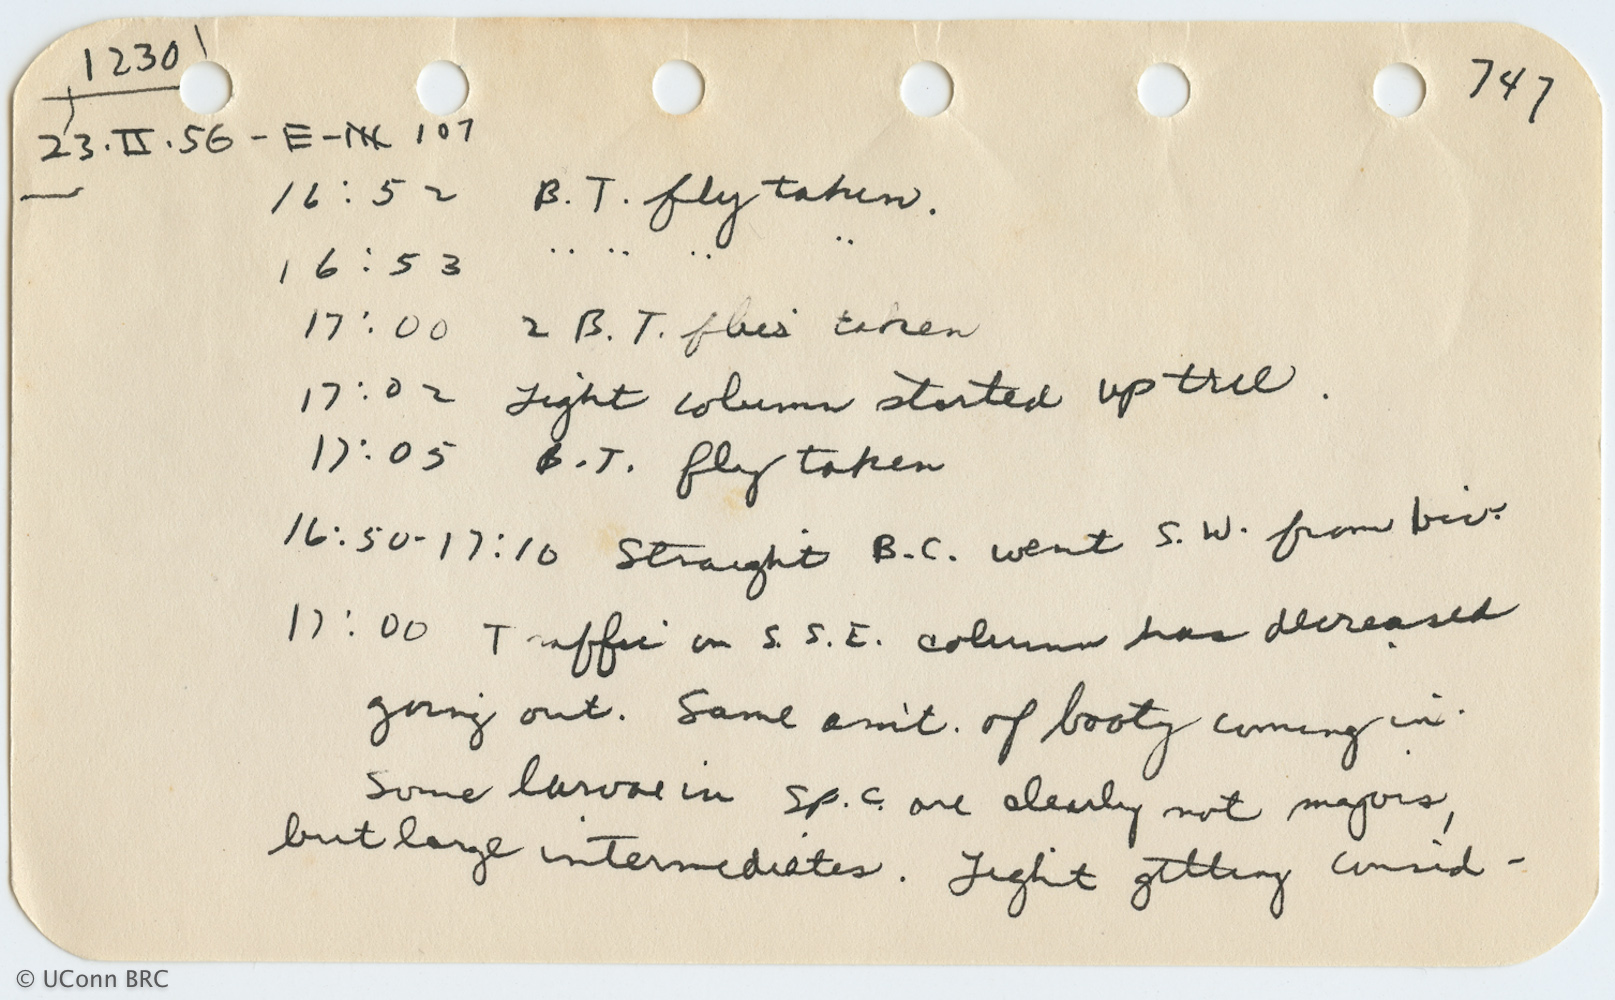 1230 747
23.II.56 - E-M 107
16:52 B.T. fly taken.
16:53 " " " "
17:00 2 B.T. flies taken
17:02 Light column started up tree.
17:05 B.T. fly taken
16:50-17:10 Straight B.C. went S.W. from biv.
17:00 Traffic on S.S.E. column has decreased
going out. Same am't. of booty coming in.
Some larvae in Sp.C. are clearly not majors,
but large intermediates. Light getting consid-
© UConn BRC